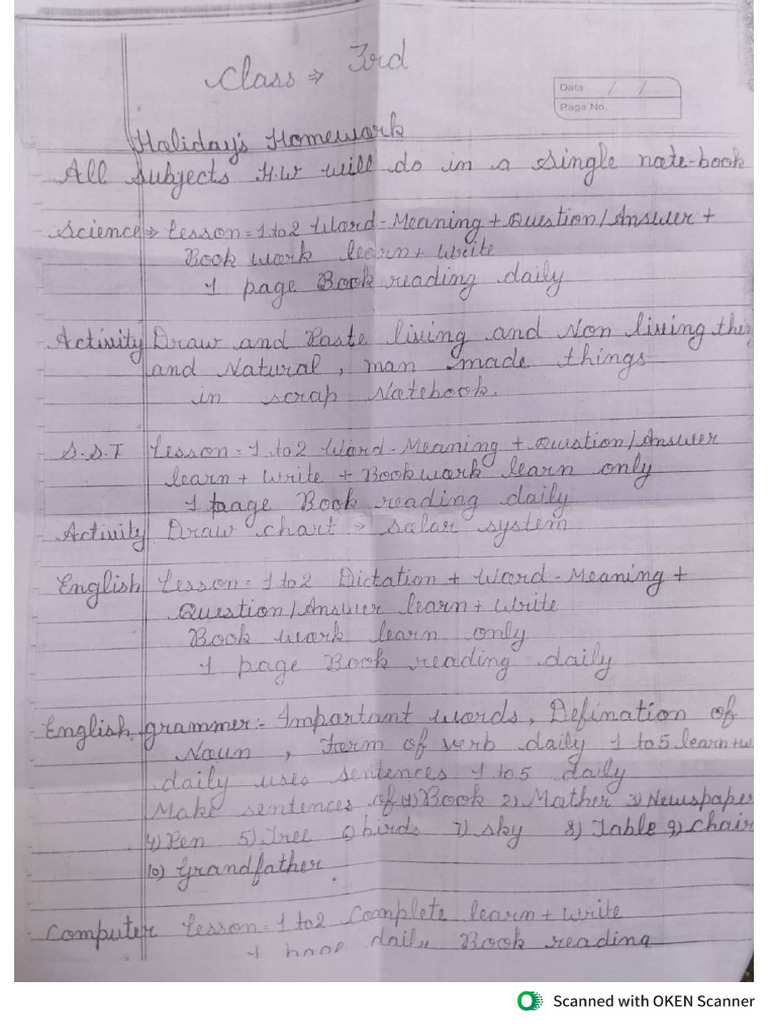 Class ⇒ 3rd
Data / /
Page No.
Haliday's Homework
All subjects H.W will do in a single nate-book
Science ⇒ Lesson = 1 to 2 Ward-Meaning + Question/Answer +
Book wark learn + write
1 page Book reading daily
Activity Draw and Paste living and Non living thin
and Natural, man made things
in scrap Natebook.
S.S.T Lesson = 1 to 2 Ward-Meaning + Question/Answer
learn + write + Bookwark learn only
1 page Book reading daily
Activity Draw chart ⇒ salar system
English Lesson = 1 to 2 Dictation + Ward-Meaning +
Question/Answer learn + write
Book wark learn only
1 page Book reading daily
English grammer:- Impartant wards, Defination of
Naun, Farm of verb daily 1 to 5 learn + w
daily uses sentences 1 to 5 daily
Make sentences of 1) Book 2) Mather 3) Newspaper
4) Pen 5) Tree 6) birds 7) sky 8) Table 9) chair
10) Grandfather.
Computer Lesson = 1 to 2 Complete learn + write
1 page daily Book reading
Scanned with OKEN Scanner